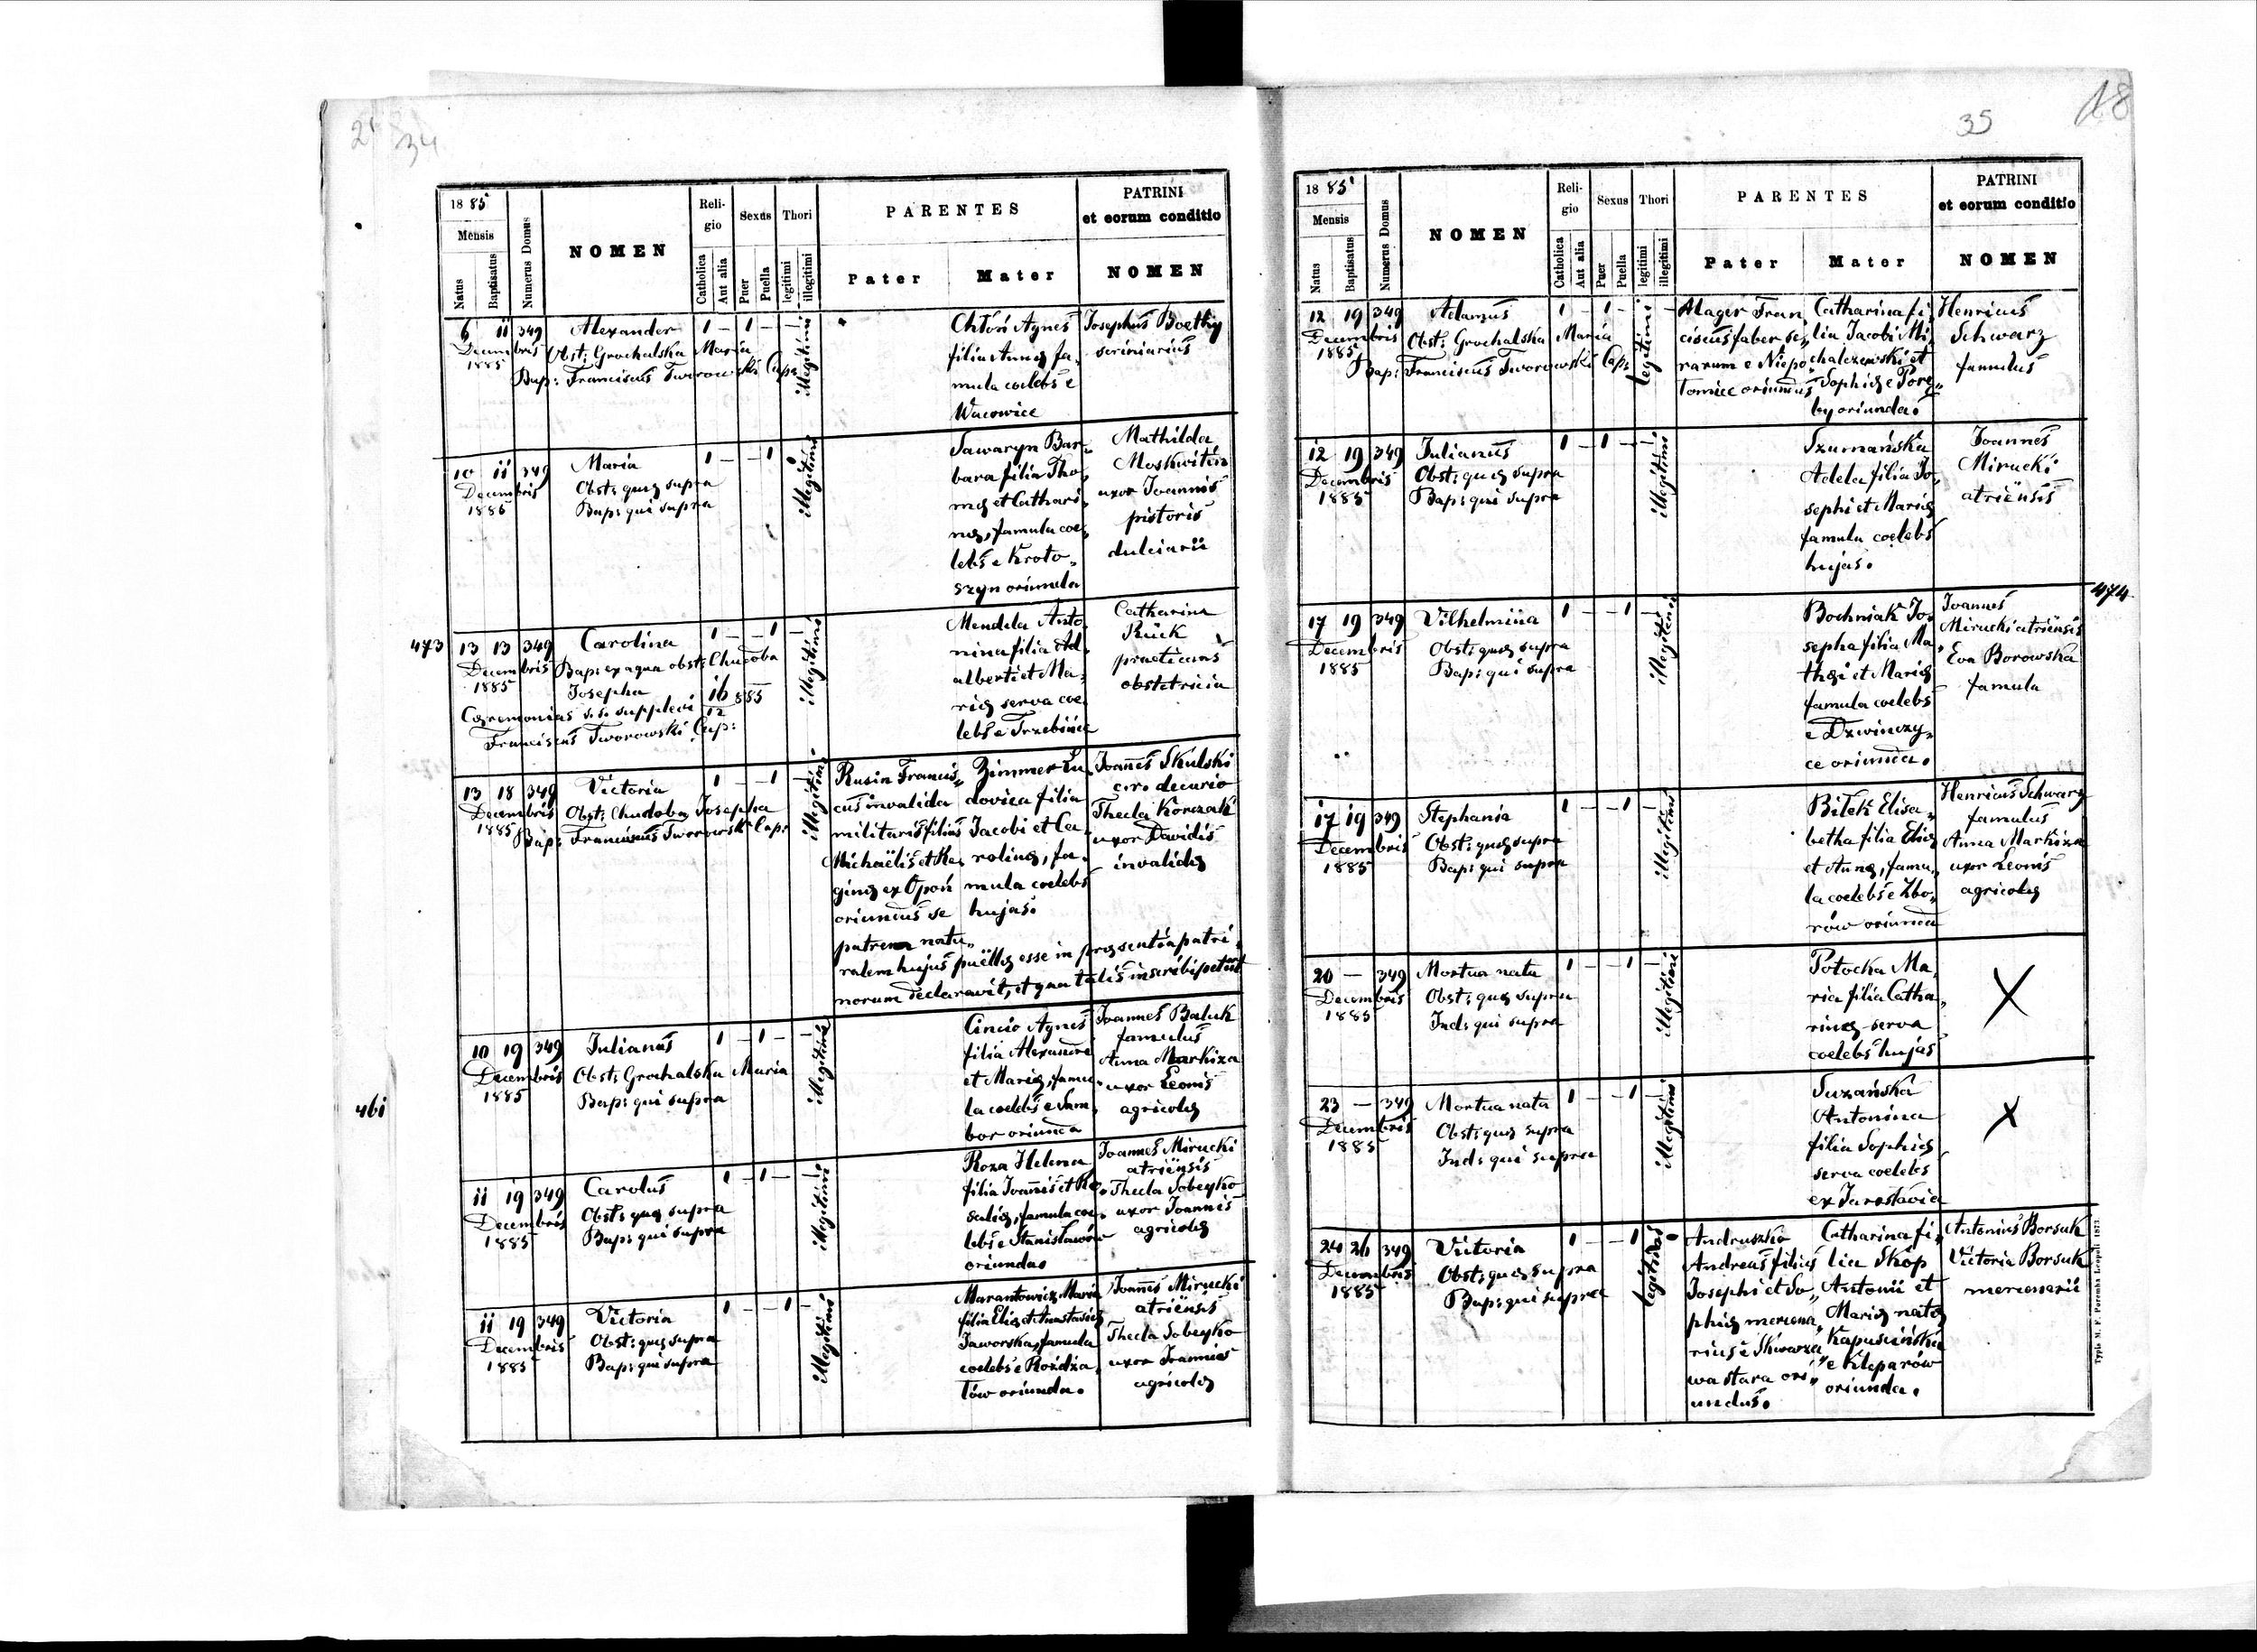 34
1885
Mensis
Natus
Baptisatus
Numerus Domus
NOMEN
Religio
Catholica
Aut alia
Sexus
Puer
Puella
Thori
legitimi
illegitimi
PARENTES
Pater
Mater
PATRINI
et eorum conditio
NOMEN
6 11 349 Alexander 1 – 1 – –
Decembris 1885
Obst: Grochalska Maria
Bap: Franciscus Tworowski Cap:
illegitimi
Chłoń Agnes
filia Annę fa„
mula coelebs e
Wacowice
Josephus Boethy
scriniarius
10 11 349 Maria 1 – – 1
Decembris 1885
Obst: quę supra
Bap: qui supra
illegitimi
Sawaryn Bar„
bara filia Tho„
mę et Cathari„
nę, famula coe„
lebs e Kroto„
szyn oriunda
Mathilda
uxor Joannis
pistoris
dulciarii
473
13 13 349 Carolina 1 – – 1 –
Decembris 1885
Bap: ex aqua obst: Chudoba
Josepha
Cęremonias s. s. supplevi 16/12 885
Franciscus Tworowski Cap:
illegitimi
Mendela Anto„
nina filia Ad„
alberti et Ma„
rię serva coe„
lebs e Trzebinia
Catharina
Rück
practicans
obstetricia
13 18 349 Victoria 1 – – 1 –
Decembris 1885
Obst: Chudoba Josepha
Bap: Franciscus Tworowski Cap:
illegitimi
Rusin Francis„
cus invalida
militaris filius
Michaëlis et Re„
ginę ex Opoń
oriundus se
patrem natu„
ralem hujus puëllę esse in pręsentia patri„
norum declaravit, et qua talis inscribi petiit
Zimmer Lu„
dovica filia
Jacobi et Ca„
rolinę, fa„
mula coelebs
hujas.
Joannes Skulski
c. r. decurio
Thecla Korczak
uxor Davidis
invalidę
461
10 19 349 Julianus 1 – 1 – –
Decembris 1885
Obst: Grochalska Maria
Bap: qui supra
illegitimi
Cincio Agnes
filia Alexandri
et Marię, famu„
la coelebs e Sam„
bor oriunda
Joannes Baluk
famulus
Anna Markiza
uxor Leonis
agricolę
11 19 349 Carolus 1 – 1 – –
Decembris 1885
Obst: quę supra
Bap: qui supra
illegitimi
Roza Helena
filia Joannis et Ro„
salię, famula coe„
lebs e Stanisławów
oriunda.
Joannes Mirucki
atriënsis
Thecla Sobeyko
uxor Joannis
agricolę
11 19 349 Victoria 1 – – 1 –
Decembris 1885
Obst: quę supra
Bap: qui supra
illegitimi
Marantowicz Maria
filia Elię et Anastasię
Jaworska, famula
coelebs e Rożdża„
łów oriunda.
Joannes Mirucki
atriënsis
Thecla Sobeyko
uxor Joannis
agricolę
35
18
1885
Mensis
Natus
Baptisatus
Numerus Domus
NOMEN
Religio
Catholica
Aut alia
Sexus
Puer
Puella
Thori
legitimi
illegitimi
PARENTES
Pater
Mater
PATRINI
et eorum conditio
NOMEN
12 19 349 Adamus 1 – 1 – –
Decembris 1885
Obst: Grochalska Maria
Bap: Franciscus Tworowski Cap:
legitimi
Mager Fran
ciscus faber se„
rarum e Niepo„
łomice oriundus
Catharina fi„
lia Jacobi Mi„
chalczewski et
Sophię e Porę„
by oriunda.
Henricus
Schwarz
famulus
12 19 349 Julianus 1 – 1 – –
Decembris 1885
Obst: quę supra
Bap: qui supra
illegitimi
Szumańska
Adela filia Jo„
sephi et Marię
famula coelebs
hujas.
Joannes
Mirucki
atriënsis
474
17 19 349 Vilhelmina 1 – – 1 –
Decembris 1885
Obst: quę supra
Bap: qui supra
illegitimi
Bochniak Jo„
sepha filia Ma„
thęi et Marię
famula coelebs
e Dzwinczy„
ce oriunda.
Joannes
Mirucki atriënsis
Eva Borowska
famula
17 19 349 Stephania 1 – – 1 –
Decembris 1885
Obst: quę supra
Bap: qui supra
illegitimi
Bilek Elisa„
betha filia Elię
et Annę, famu„
la coelebs e Zbo„
rów oriunda
Henricus Schwarz
famulus
Anna Markiza
uxor Leonis
agricolę
20 – 349 Mortua nata 1 – – 1 –
Decembris 1885
Obst: quę supra
Ind: qui supra
illegitimi
Potocka Ma„
ria filia Catha„
rinę serva
coelebs hujas
X
23 – 349 Mortua nata 1 – – 1 –
Decembris 1885
Obst: quę supra
Ind: qui supra
illegitimi
Suzańska
Antonina
filia Sophię
serva coelebs
ex Jaroslavia
X
24 26 349 Victoria 1 – – 1
Decembris 1885
Obst: quę supra
Bap: qui supra
legitimi
Andruszko
Andreas filius
Josephi et So„
phię mercena„
rius e Skwarza„
wa stara ori„
undus.
Catharina fi„
lia Skop
Antonii et
Marię natę
Kapuscińska
e Kleparów
oriunda.
Antonius Borsuk
Victoria Borsuk
mercenarii
Typis M. F. Poremba Leopoli 1873.